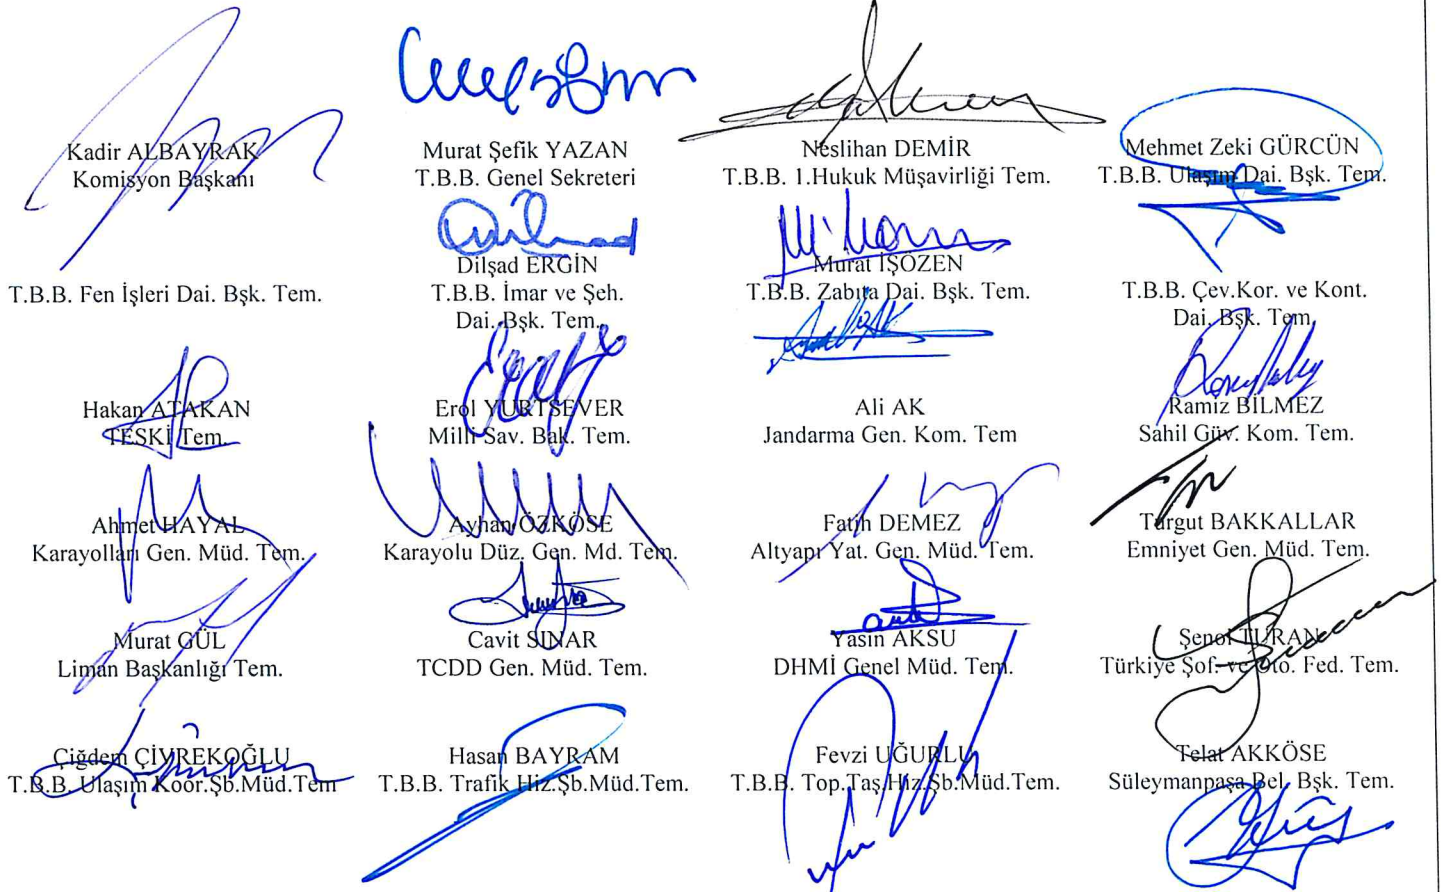 Kadir ALBAYRAK
Komisyon Başkanı
Murat Şefik YAZAN
T.B.B. Genel Sekreteri
Neslihan DEMİR
T.B.B. 1.Hukuk Müşavirliği Tem.
Mehmet Zeki GÜRCÜN
T.B.B. Ulaşım Dai. Bşk. Tem.
T.B.B. Fen İşleri Dai. Bşk. Tem.
Dilşad ERGİN
T.B.B. İmar ve Şeh.
Dai. Bşk. Tem.
Murat İŞÖZEN
T.B.B. Zabıta Dai. Bşk. Tem.
T.B.B. Çev.Kor. ve Kont.
Dai. Bşk. Tem.
Hakan ATAKAN
TESKİ Tem.
Erol YURTSEVER
Milli Sav. Bak. Tem.
Ali AK
Jandarma Gen. Kom. Tem
Ramiz BİLMEZ
Sahil Güv. Kom. Tem.
Ahmet HAYAL
Karayolları Gen. Müd. Tem.
Ayhan ÖZKÖSE
Karayolu Düz. Gen. Md. Tem.
Fatih DEMEZ
Altyapı Yat. Gen. Müd. Tem.
Turgut BAKKALLAR
Emniyet Gen. Müd. Tem.
Murat GÜL
Liman Başkanlığı Tem.
Cavit SINAR
TCDD Gen. Müd. Tem.
Yasin AKSU
DHMİ Genel Müd. Tem.
Şenol TURAN
Türkiye Şof. ve Oto. Fed. Tem.
Çiğdem ÇİVREKOĞLU
T.B.B. Ulaşım Koor.Şb.Müd.Tem
Hasan BAYRAM
T.B.B. Trafik Hiz.Şb.Müd.Tem.
Fevzi UĞURLU
T.B.B. Top.Taş.Hiz.Şb.Müd.Tem.
Telat AKKÖSE
Süleymanpaşa Bel. Bşk. Tem.